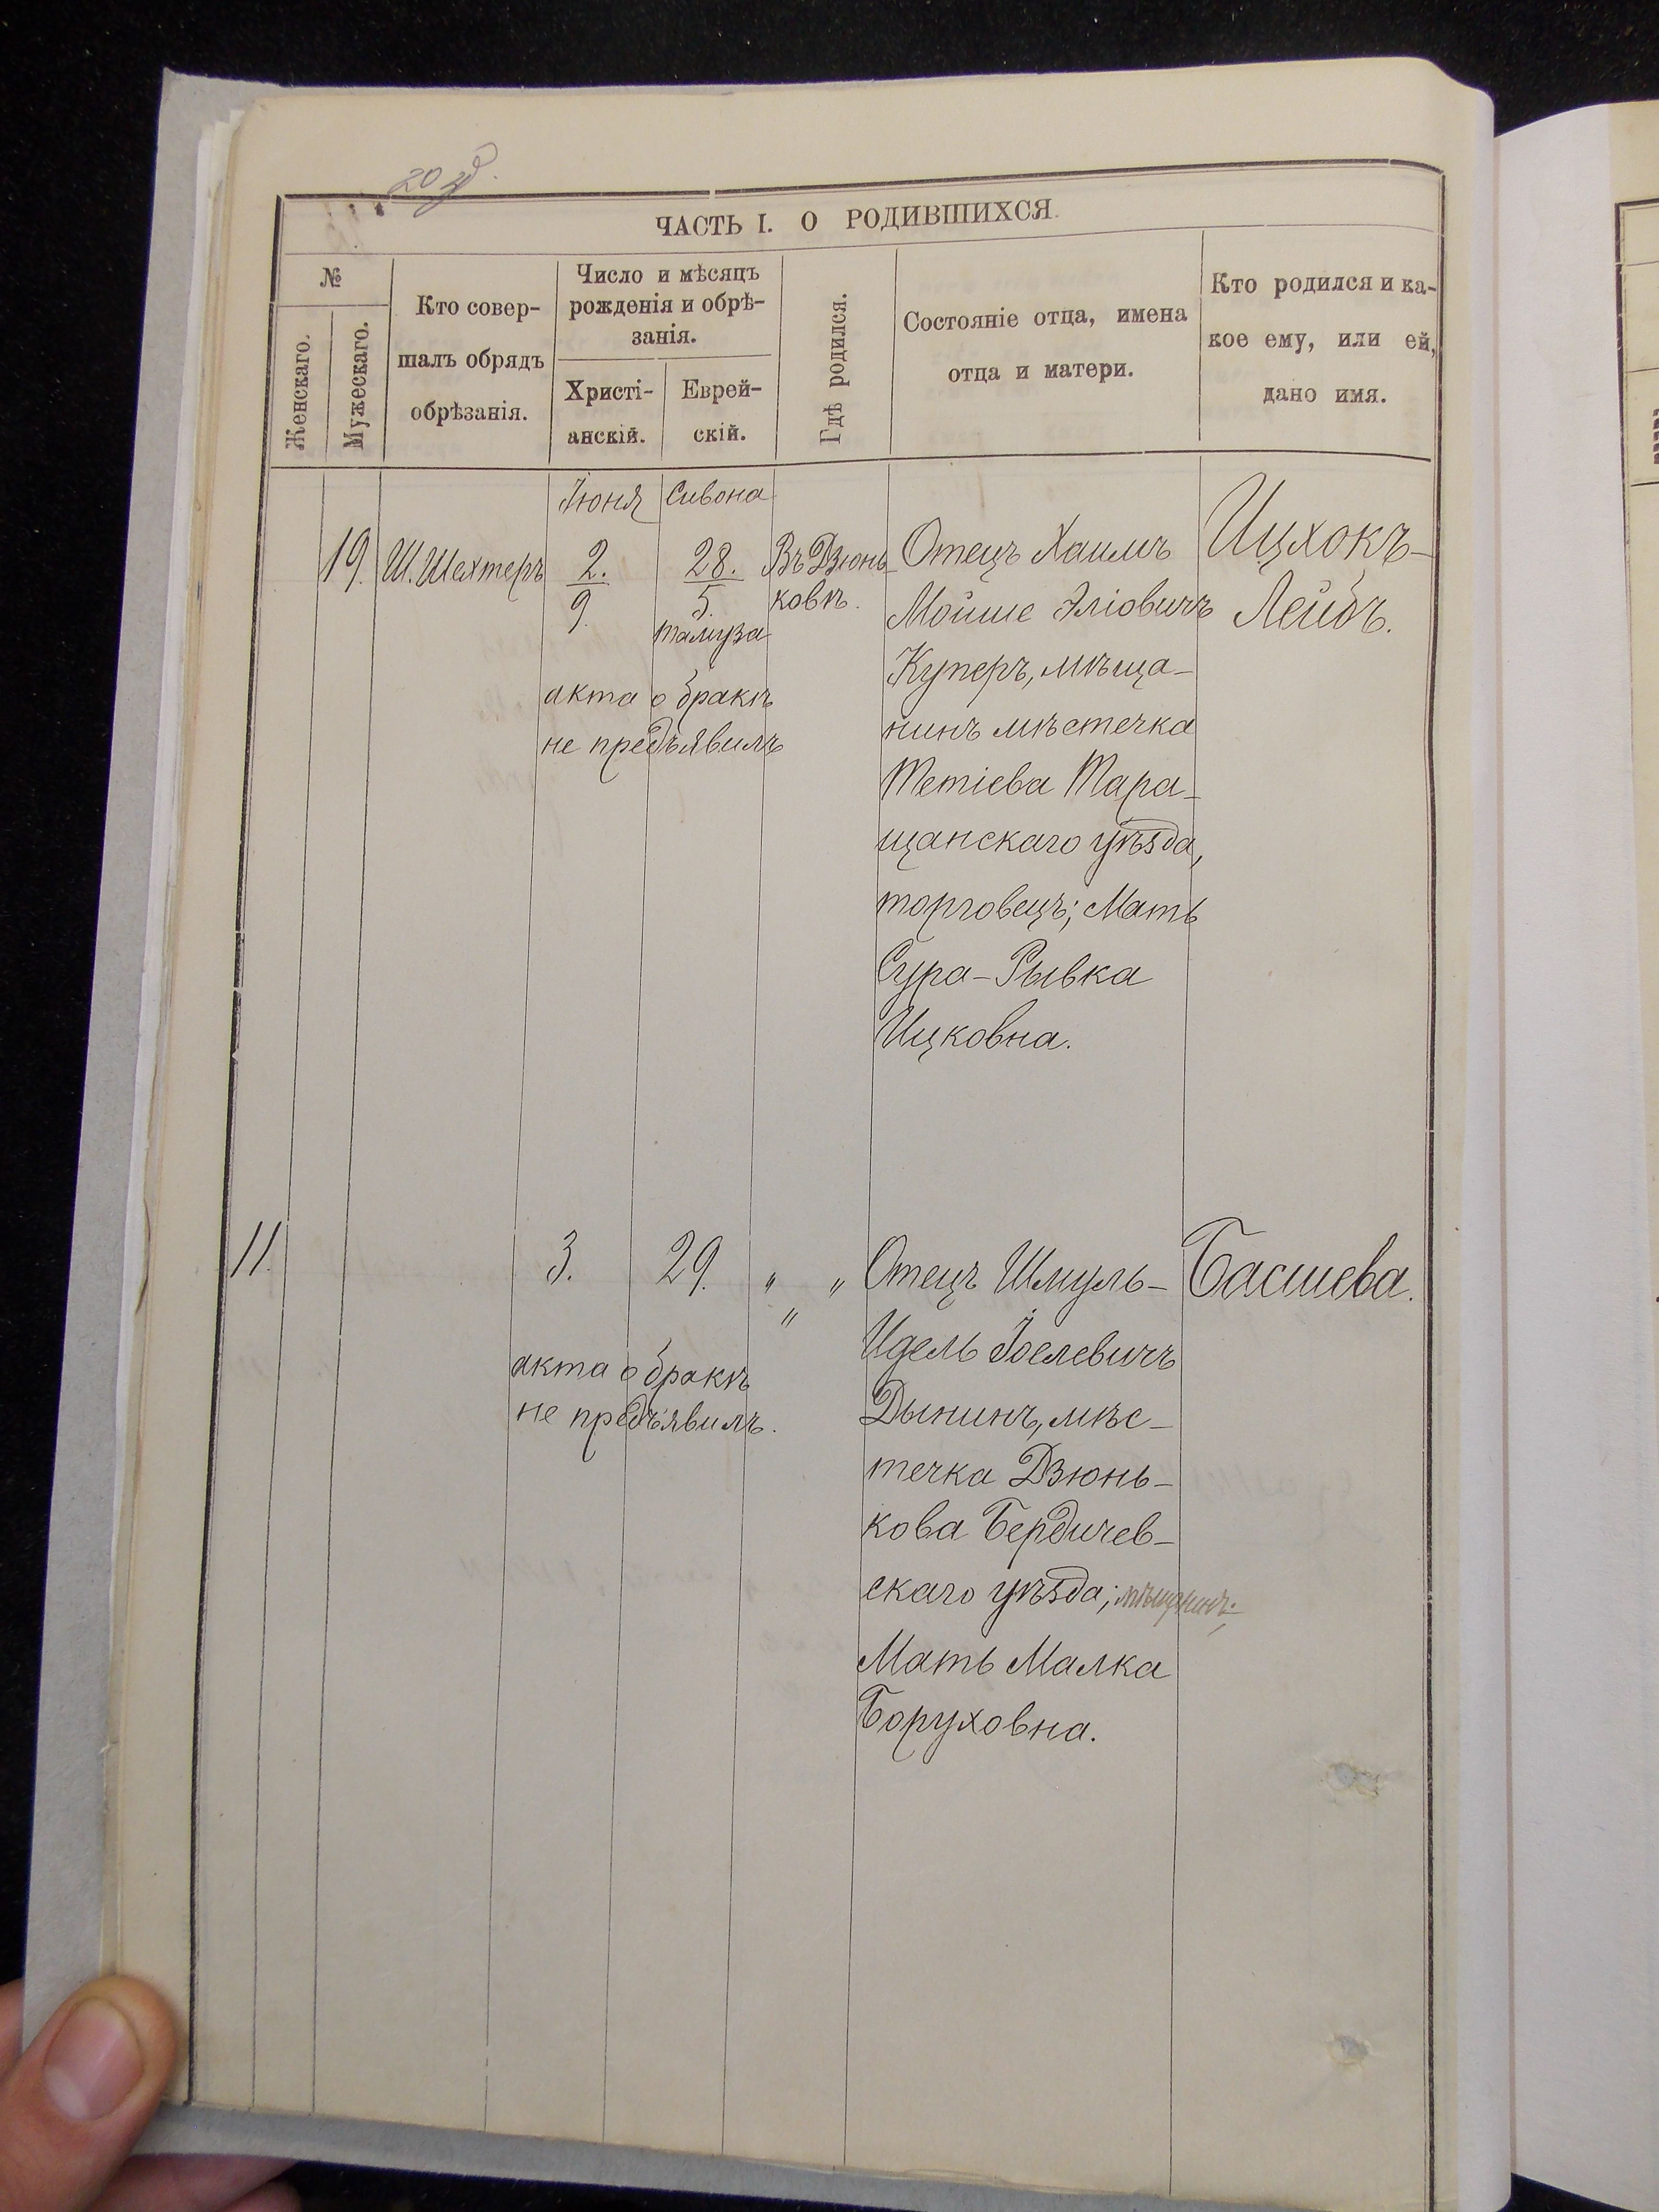 20 об.
ЧАСТЬ I. О РОДИВШИХСЯ.
№
Женскаго.
Мужескаго.
Кто совер-
шалъ обрядъ
обрѣзанія.
Число и мѣсяцъ
рожденія и обрѣ-
занія.
Христі-
анскій.
Еврей-
скій.
Гдѣ родился.
Состояніе отца, имена
отца и матери.
Кто родился и ка-
кое ему, или ей,
дано имя.
Іюня
Сивона
19.
Ш. Шехтеръ
2.
9.
28.
5.
тамуза
Въ Дзюнь-
ковѣ.
акта о бракѣ
не предъявилъ
Отецъ Хаимъ
Мойше Эліовичъ
Куперъ, мѣща-
нинъ мѣстечка
Тетіева Тара-
щанскаго уѣзда,
торговецъ; Мать
Сура-Рывка
Ицковна.
Ицхокъ-
Лейбъ.
11.
3.
29.
" "
"
акта о бракѣ
не предъявилъ.
Отецъ Шмуль-
Идель Іоелевичъ
Дынинъ, мѣс-
течка Дзюнь-
кова Бердичев-
скаго уѣзда; мѣщанинъ;
Мать Малка
Боруховна.
Басшева.